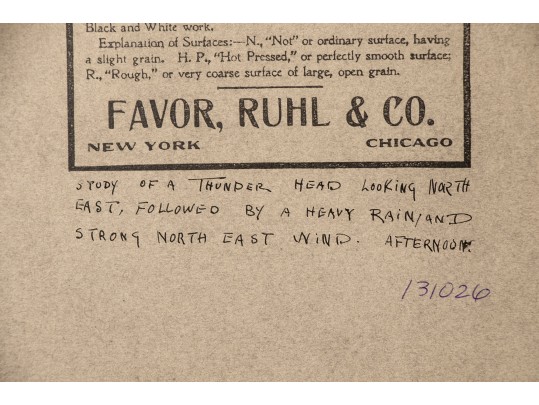 Black and White work.
Explanation of Surfaces:—N., "Not" or ordinary surface, having
a slight grain. H. P., "Hot Pressed," or perfectly smooth surface;
R., "Rough," or very coarse surface of large, open grain.
FAVOR, RUHL & CO.
NEW YORK CHICAGO
STUDY OF A THUNDER HEAD LOOKING NORTH
EAST, FOLLOWED BY A HEAVY RAIN/AND
STRONG NORTH EAST WIND. AFTERNOON.
131026